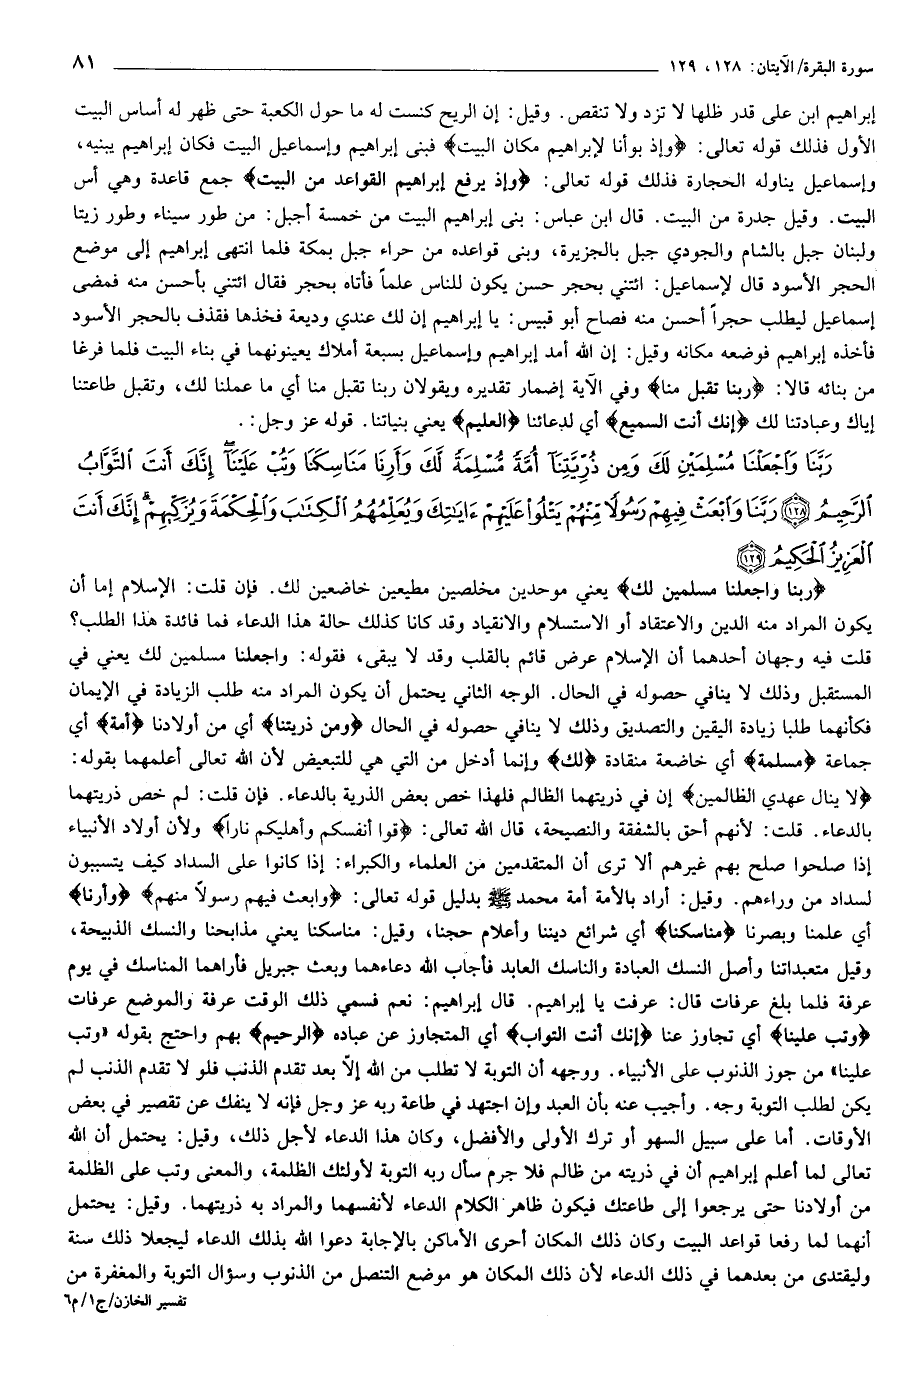 سورة البقرة/ الآيتان: ١٢٨، ١٢٩ ٨١
إبراهيم ابن على قدر ظلها لا تزد ولا تنقص. وقيل: إن الريح كنست له ما حول الكعبة حتى ظهر له أساس البيت
الأول فذلك قوله تعالى: ﴿وإذ بوأنا لإبراهيم مكان البيت﴾ فبنى إبراهيم وإسماعيل البيت فكان إبراهيم يبنيه،
وإسماعيل يناوله الحجارة فذلك قوله تعالى: ﴿وإذ يرفع إبراهيم القواعد من البيت﴾ جمع قاعدة وهي أس
البيت. وقيل جدرة من البيت. قال ابن عباس: بنى إبراهيم البيت من خمسة أجبل: من طور سيناء وطور زيتا
ولبنان جبل بالشام والجودي جبل بالجزيرة، وبنى قواعده من حراء جبل بمكة فلما انتهى إبراهيم إلى موضع
الحجر الأسود قال لإسماعيل: ائتني بحجر حسن يكون للناس علماً فأتاه بحجر فقال ائتني بأحسن منه فمضى
إسماعيل ليطلب حجراً أحسن منه فصاح أبو قبيس: يا إبراهيم إن لك عندي وديعة فخذها فقذف بالحجر الأسود
فأخذه إبراهيم فوضعه مكانه وقيل: إن الله أمد إبراهيم وإسماعيل بسبعة أملاك يعينونهما في بناء البيت فلما فرغا
من بنائه قالا: ﴿ربنا تقبل منا﴾ وفي الآية إضمار تقديره ويقولان ربنا تقبل منا أي ما عملنا لك، وتقبل طاعتنا
إياك وعبادتنا لك ﴿إنك أنت السميع﴾ أي لدعائنا ﴿العليم﴾ يعني بنياتنا. قوله عز وجل: .
رَبَّنَا وَٱجْعَلْنَا مُسْلِمَيْنِ لَكَ وَمِن ذُرِّيَّتِنَآ أُمَّةً مُّسْلِمَةً لَّكَ وَأَرِنَا مَنَاسِكَنَا وَتُبْ عَلَيْنَآ ۖ إِنَّكَ أَنتَ ٱلتَّوَّابُ
ٱلرَّحِيمُ ﴿١٢٨﴾ رَبَّنَا وَٱبْعَثْ فِيهِمْ رَسُولًا مِّنْهُمْ يَتْلُوا۟ عَلَيْهِمْ ءَايَٰتِكَ وَيُعَلِّمُهُمُ ٱلْكِتَٰبَ وَٱلْحِكْمَةَ وَيُزَكِّيهِمْ ۚ إِنَّكَ أَنتَ
ٱلْعَزِيزُ ٱلْحَكِيمُ ﴿١٢٩﴾
﴿ربنا واجعلنا مسلمين لك﴾ يعني موحدين مخلصين مطيعين خاضعين لك. فإن قلت: الإسلام إما أن
يكون المراد منه الدين والاعتقاد أو الاستسلام والانقياد وقد كانا كذلك حالة هذا الدعاء فما فائدة هذا الطلب؟
قلت فيه وجهان أحدهما أن الإسلام عرض قائم بالقلب وقد لا يبقى، فقوله: واجعلنا مسلمين لك يعني في
المستقبل وذلك لا ينافي حصوله في الحال. الوجه الثاني يحتمل أن يكون المراد منه طلب الزيادة في الإيمان
فكأنهما طلبا زيادة اليقين والتصديق وذلك لا ينافي حصوله في الحال ﴿ومن ذريتنا﴾ أي من أولادنا ﴿أمة﴾ أي
جماعة ﴿مسلمة﴾ أي خاضعة منقادة ﴿لك﴾ وإنما أدخل من التي هي للتبعيض لأن الله تعالى أعلمهما بقوله:
﴿لا ينال عهدي الظالمين﴾ إن في ذريتهما الظالم فلهذا خص بعض الذرية بالدعاء. فإن قلت: لم خص ذريتهما
بالدعاء. قلت: لأنهم أحق بالشفقة والنصيحة، قال الله تعالى: ﴿قوا أنفسكم وأهليكم ناراً﴾ ولأن أولاد الأنبياء
إذا صلحوا صلح بهم غيرهم ألا ترى أن المتقدمين من العلماء والكبراء: إذا كانوا على السداد كيف يتسببون
لسداد من وراءهم. وقيل: أراد بالأمة أمة محمد ﷺ بدليل قوله تعالى: ﴿وابعث فيهم رسولاً منهم﴾ ﴿وأرنا﴾
أي علمنا وبصرنا ﴿مناسكنا﴾ أي شرائع ديننا وأعلام حجنا، وقيل: مناسكنا يعني مذابحنا والنسك الذبيحة،
وقيل متعبداتنا وأصل النسك العبادة والناسك العابد فأجاب الله دعاءهما وبعث جبريل فأراهما المناسك في يوم
عرفة فلما بلغ عرفات قال: عرفت يا إبراهيم. قال إبراهيم: نعم فسمي ذلك الوقت عرفة والموضع عرفات
﴿وتب علينا﴾ أي تجاوز عنا ﴿إنك أنت التواب﴾ أي المتجاوز عن عباده ﴿الرحيم﴾ بهم واحتج بقوله «وتب
علينا» من جوز الذنوب على الأنبياء. ووجهه أن التوبة لا تطلب من الله إلاّ بعد تقدم الذنب فلو لا تقدم الذنب لم
يكن لطلب التوبة وجه. وأجيب عنه بأن العبد وإن اجتهد في طاعة ربه عز وجل فإنه لا ينفك عن تقصير في بعض
الأوقات. أما على سبيل السهو أو ترك الأولى والأفضل، وكان هذا الدعاء لأجل ذلك، وقيل: يحتمل أن الله
تعالى لما أعلم إبراهيم أن في ذريته من ظالم فلا جرم سأل ربه التوبة لأولئك الظلمة، والمعنى وتب على الظلمة
من أولادنا حتى يرجعوا إلى طاعتك فيكون ظاهر الكلام الدعاء لأنفسهما والمراد به ذريتهما. وقيل: يحتمل
أنهما لما رفعا قواعد البيت وكان ذلك المكان أحرى الأماكن بالإجابة دعوا الله بذلك الدعاء ليجعلا ذلك سنة
وليقتدى من بعدهما في ذلك الدعاء لأن ذلك المكان هو موضع التنصل من الذنوب وسؤال التوبة والمغفرة من
تفسير الخازن/ج١/م٦